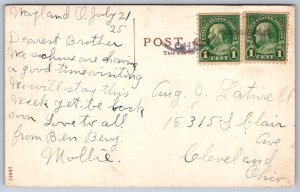 Wayland O, July 21
25
Dearest Brother
We are having
a good time visiting
We will stay this
week yet. be back
soon Love to all
from Ben Beny.
Mollie.
POST
Aug. J. Latwell
18315 St Clair
Ave
Cleveland
Ohio.
1 CENT 1
1 CENT 1